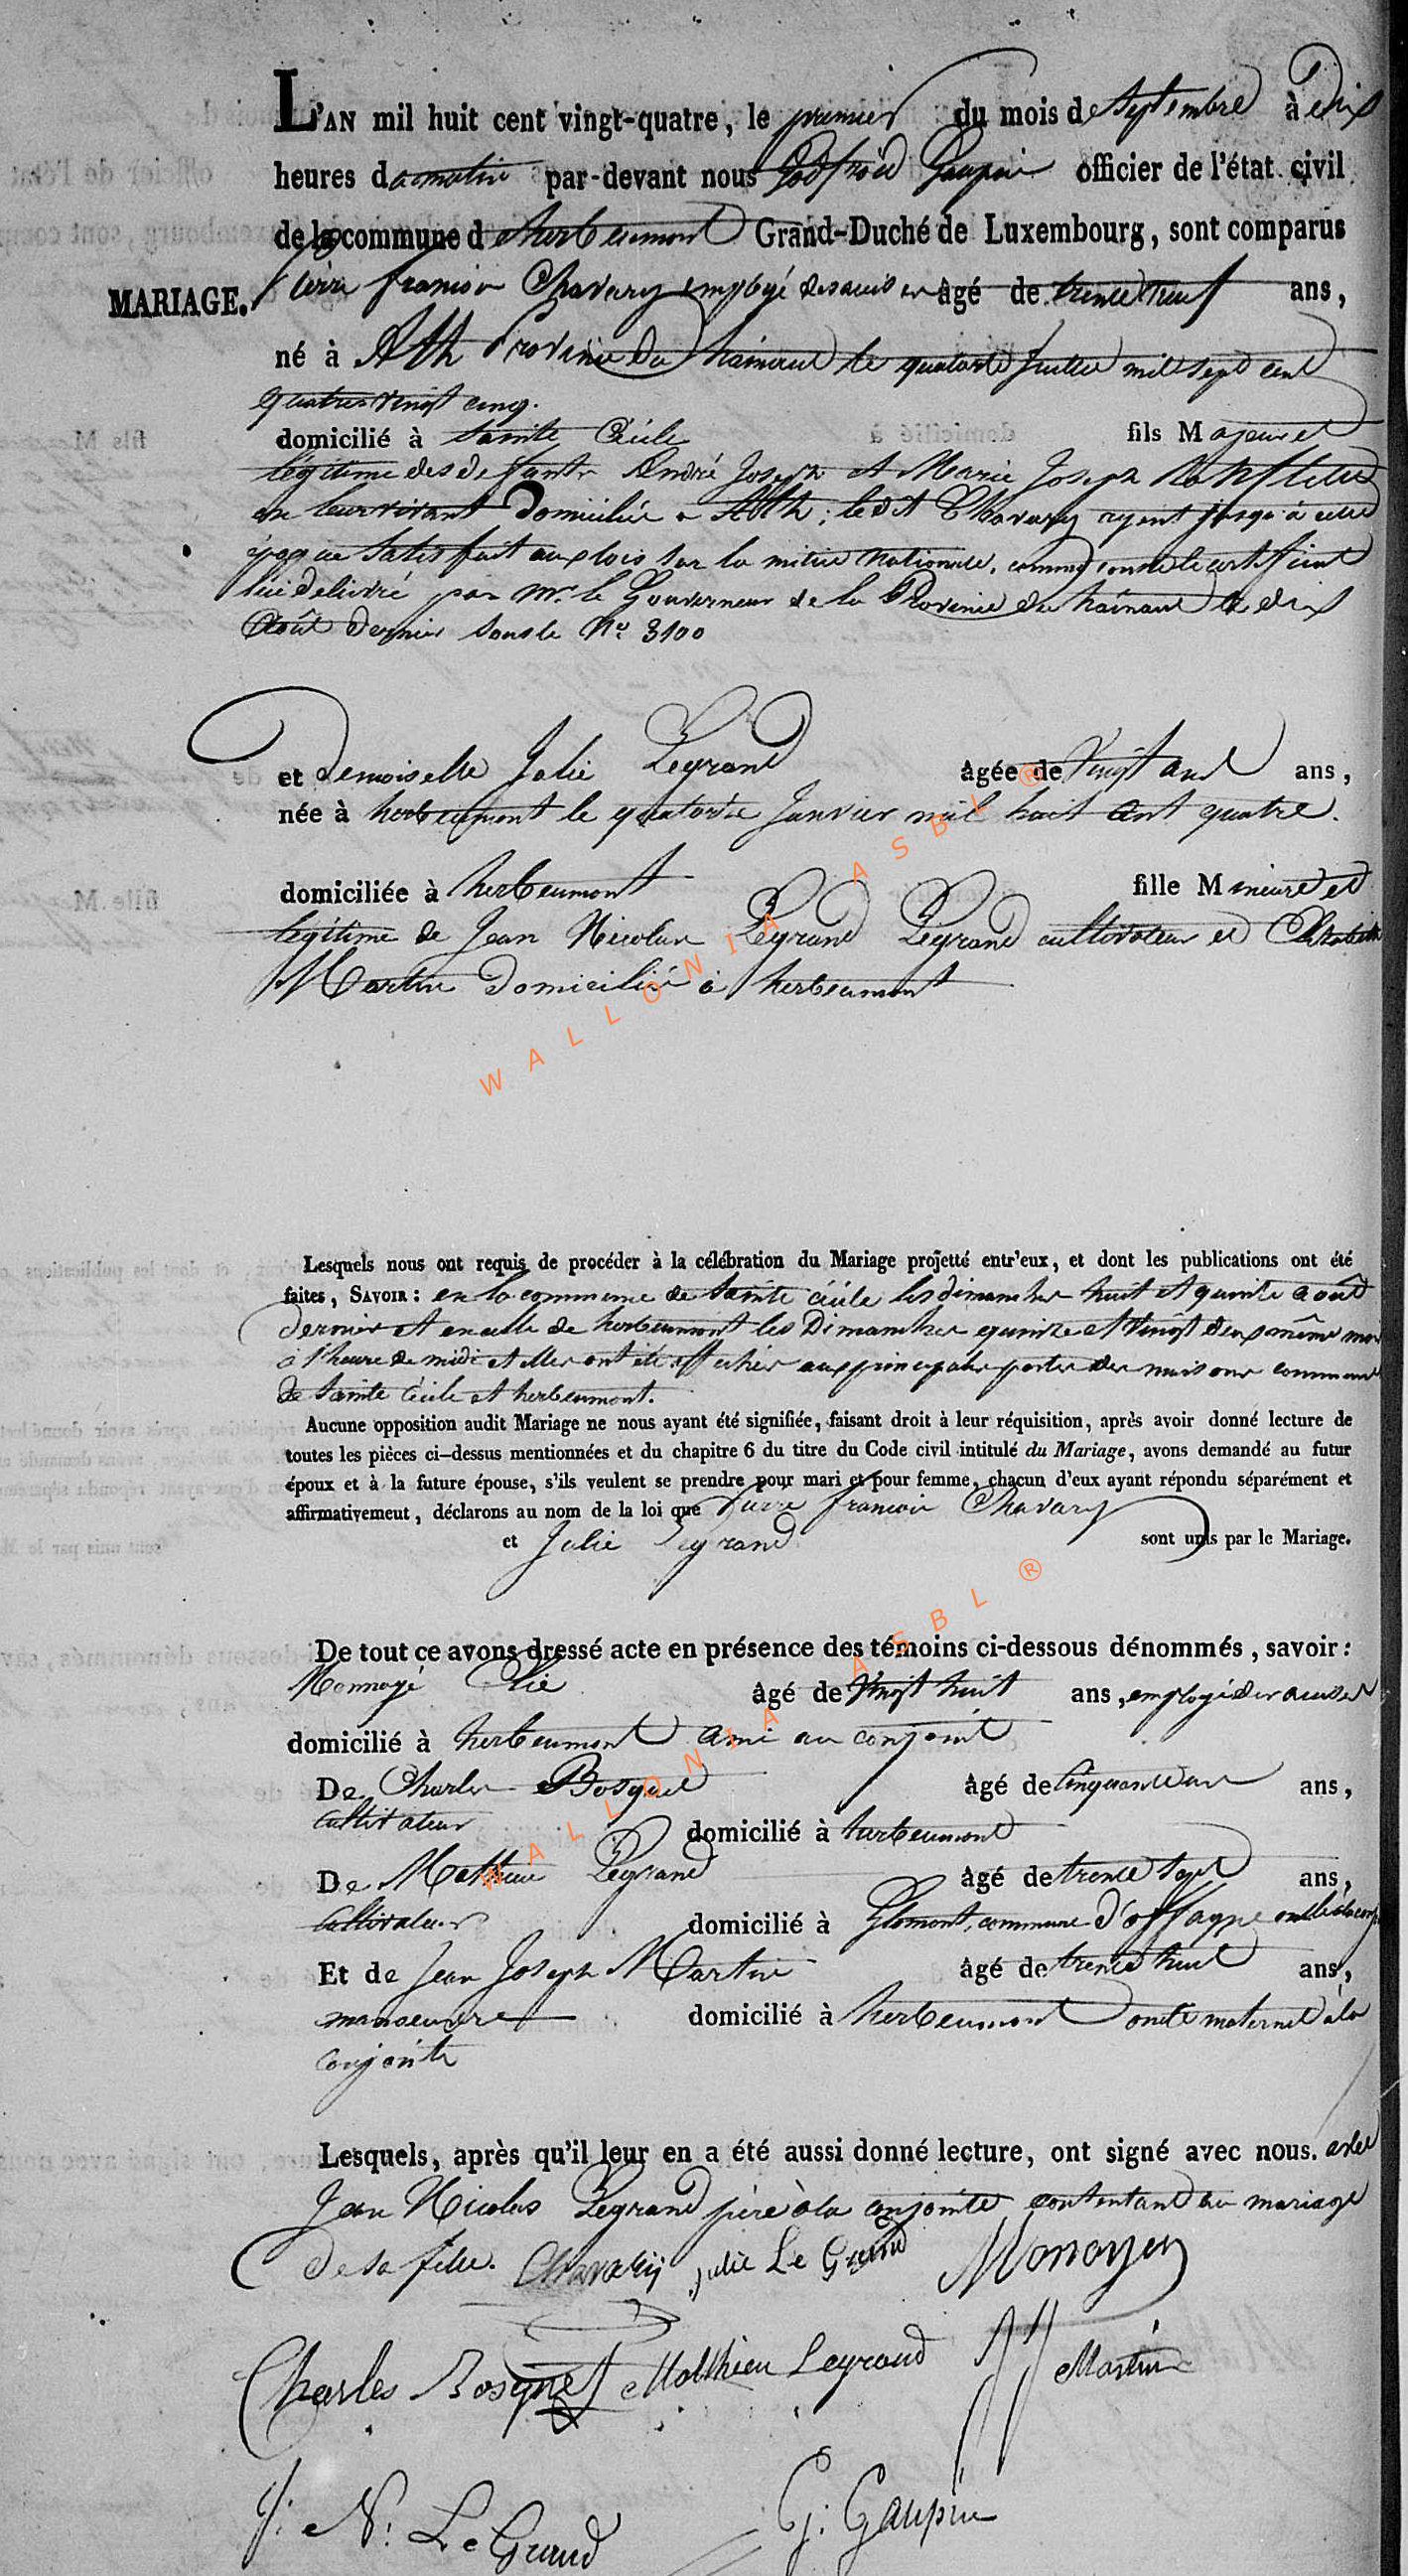 L'AN mil huit cent vingt-quatre, le premier du mois de septembre à dix
heures du matin par-devant nous Godfroid Gaupin officier de l'état civil
de la commune d'herbeumont Grand-Duché de Luxembourg, sont comparus
MARIAGE. Pierre francois Chavary employé des accises âgé de trente neuf ans,
né à Ath Province du hainaut le quatorze Juillet mil sept cent
quatre vingt cinq.
domicilié à Sainte Cécile fils Majeur et
légitime des defunts André Joseph et Marie Joseph
en leur vivant Domiciliés a Ath; ledit Chavary ayant jusqu'à cette
époque satisfait aux lois sur la milice nationale, comme conste le certificat
lui delivré par Mr. le Gouverneur de la Province du hainaut le dix
Août dernier sous le No. 3100
et Demoiselle Julie Legrand âgée de vingt ans ans,
née à herbeumont le quatorze Janvier mil huit cent quatre.
domiciliée à herbeumont fille Mineure et
légitime de Jean Nicolas Legrand Legrand cultivateur et Elisabeth
Martin Domiciliés à herbeumont
Lesquels nous ont requis de procéder à la célébration du Mariage projetté entr'eux, et dont les publications ont été
faites, SAVOIR : en la commune de Sainte Cécile les dimanches huit et quinze août
dernier et en celle de herbeumont les Dimanches quinze et vingt deux même mois
à l'heure de midi et elles ont été affichées aux principales portes des maisons communes
de Sainte Cécile et herbeumont.
Aucune opposition audit Mariage ne nous ayant été signifiée, faisant droit à leur réquisition, après avoir donné lecture de
toutes les pièces ci-dessus mentionnées et du chapitre 6 du titre du Code civil intitulé du Mariage, avons demandé au futur
époux et à la future épouse, s'ils veulent se prendre pour mari et pour femme, chacun d'eux ayant répondu séparément et
affirmativement, déclarons au nom de la loi que Pierre francois Chavary
et Julie Legrand sont unis par le Mariage.
De tout ce avons dressé acte en présence des témoins ci-dessous dénommés, savoir :
Monnoyé Elie âgé de vingt huit ans, employé des accises
domicilié à herbeumont ami au conjoint
De Charles Bosquet âgé de cinquante ans,
cultivateur domicilié à herbeumont
De Mathieu Legrand âgé de trente sept ans,
cultivateur domicilié à Glomont, commune d'offagne
Et de Jean Joseph Martin âgé de trente huit ans,
manoeuvre domicilié à herbeumont oncle maternel à la
conjointe
Lesquels, après qu'il leur en a été aussi donné lecture, ont signé avec nous. avec
Jean Nicolas Legrand père à la conjointe consentant au mariage
de sa fille. Chavary julie Le Grand Monoyer
Charles Bosquet Mathieu Legrand JJ Martin
J: N: Le Grand G: Gaupin
WALLONIA ASBL ®
WALLONIA ASBL ®